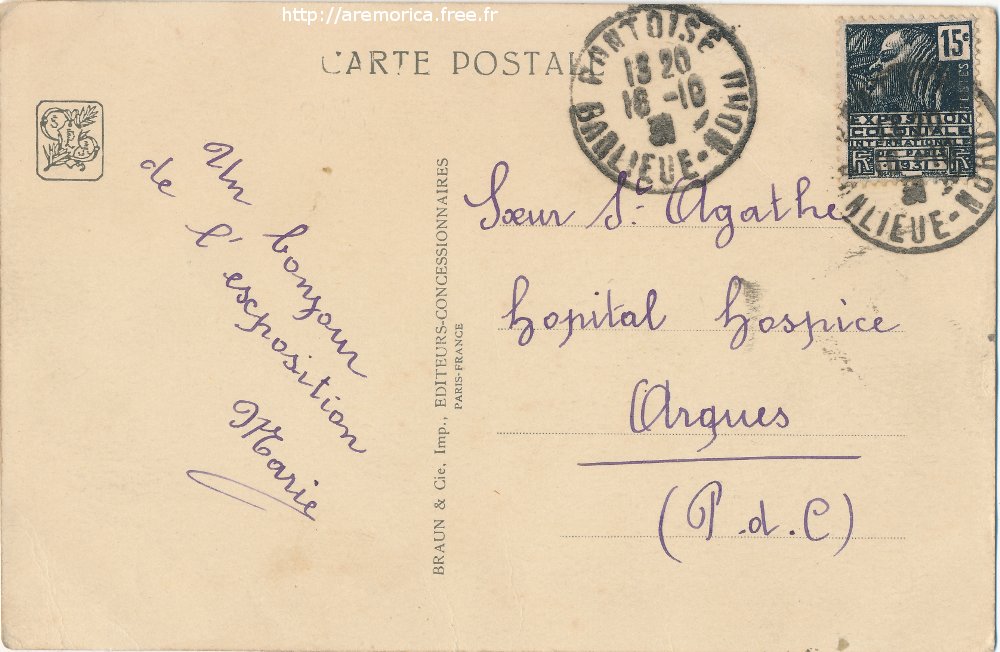 http://aremorica.free.fr
CARTE POSTALE
Un bonjour
de l'exposition
Marie
BRAUN & Cie, Imp., EDITEURS-CONCESSIONNAIRES
PARIS-FRANCE
PONTOISE
13 20
16 -10
BANLIEUE-NORD
15c
POSTES
EXPOSITION
COLONIALE
INTERNATIONALE
DE PARIS
1931
RF RF
BANLIEUE-NORD
Sœur St Agathe
hopital hospice
Arques
(P.d.C)